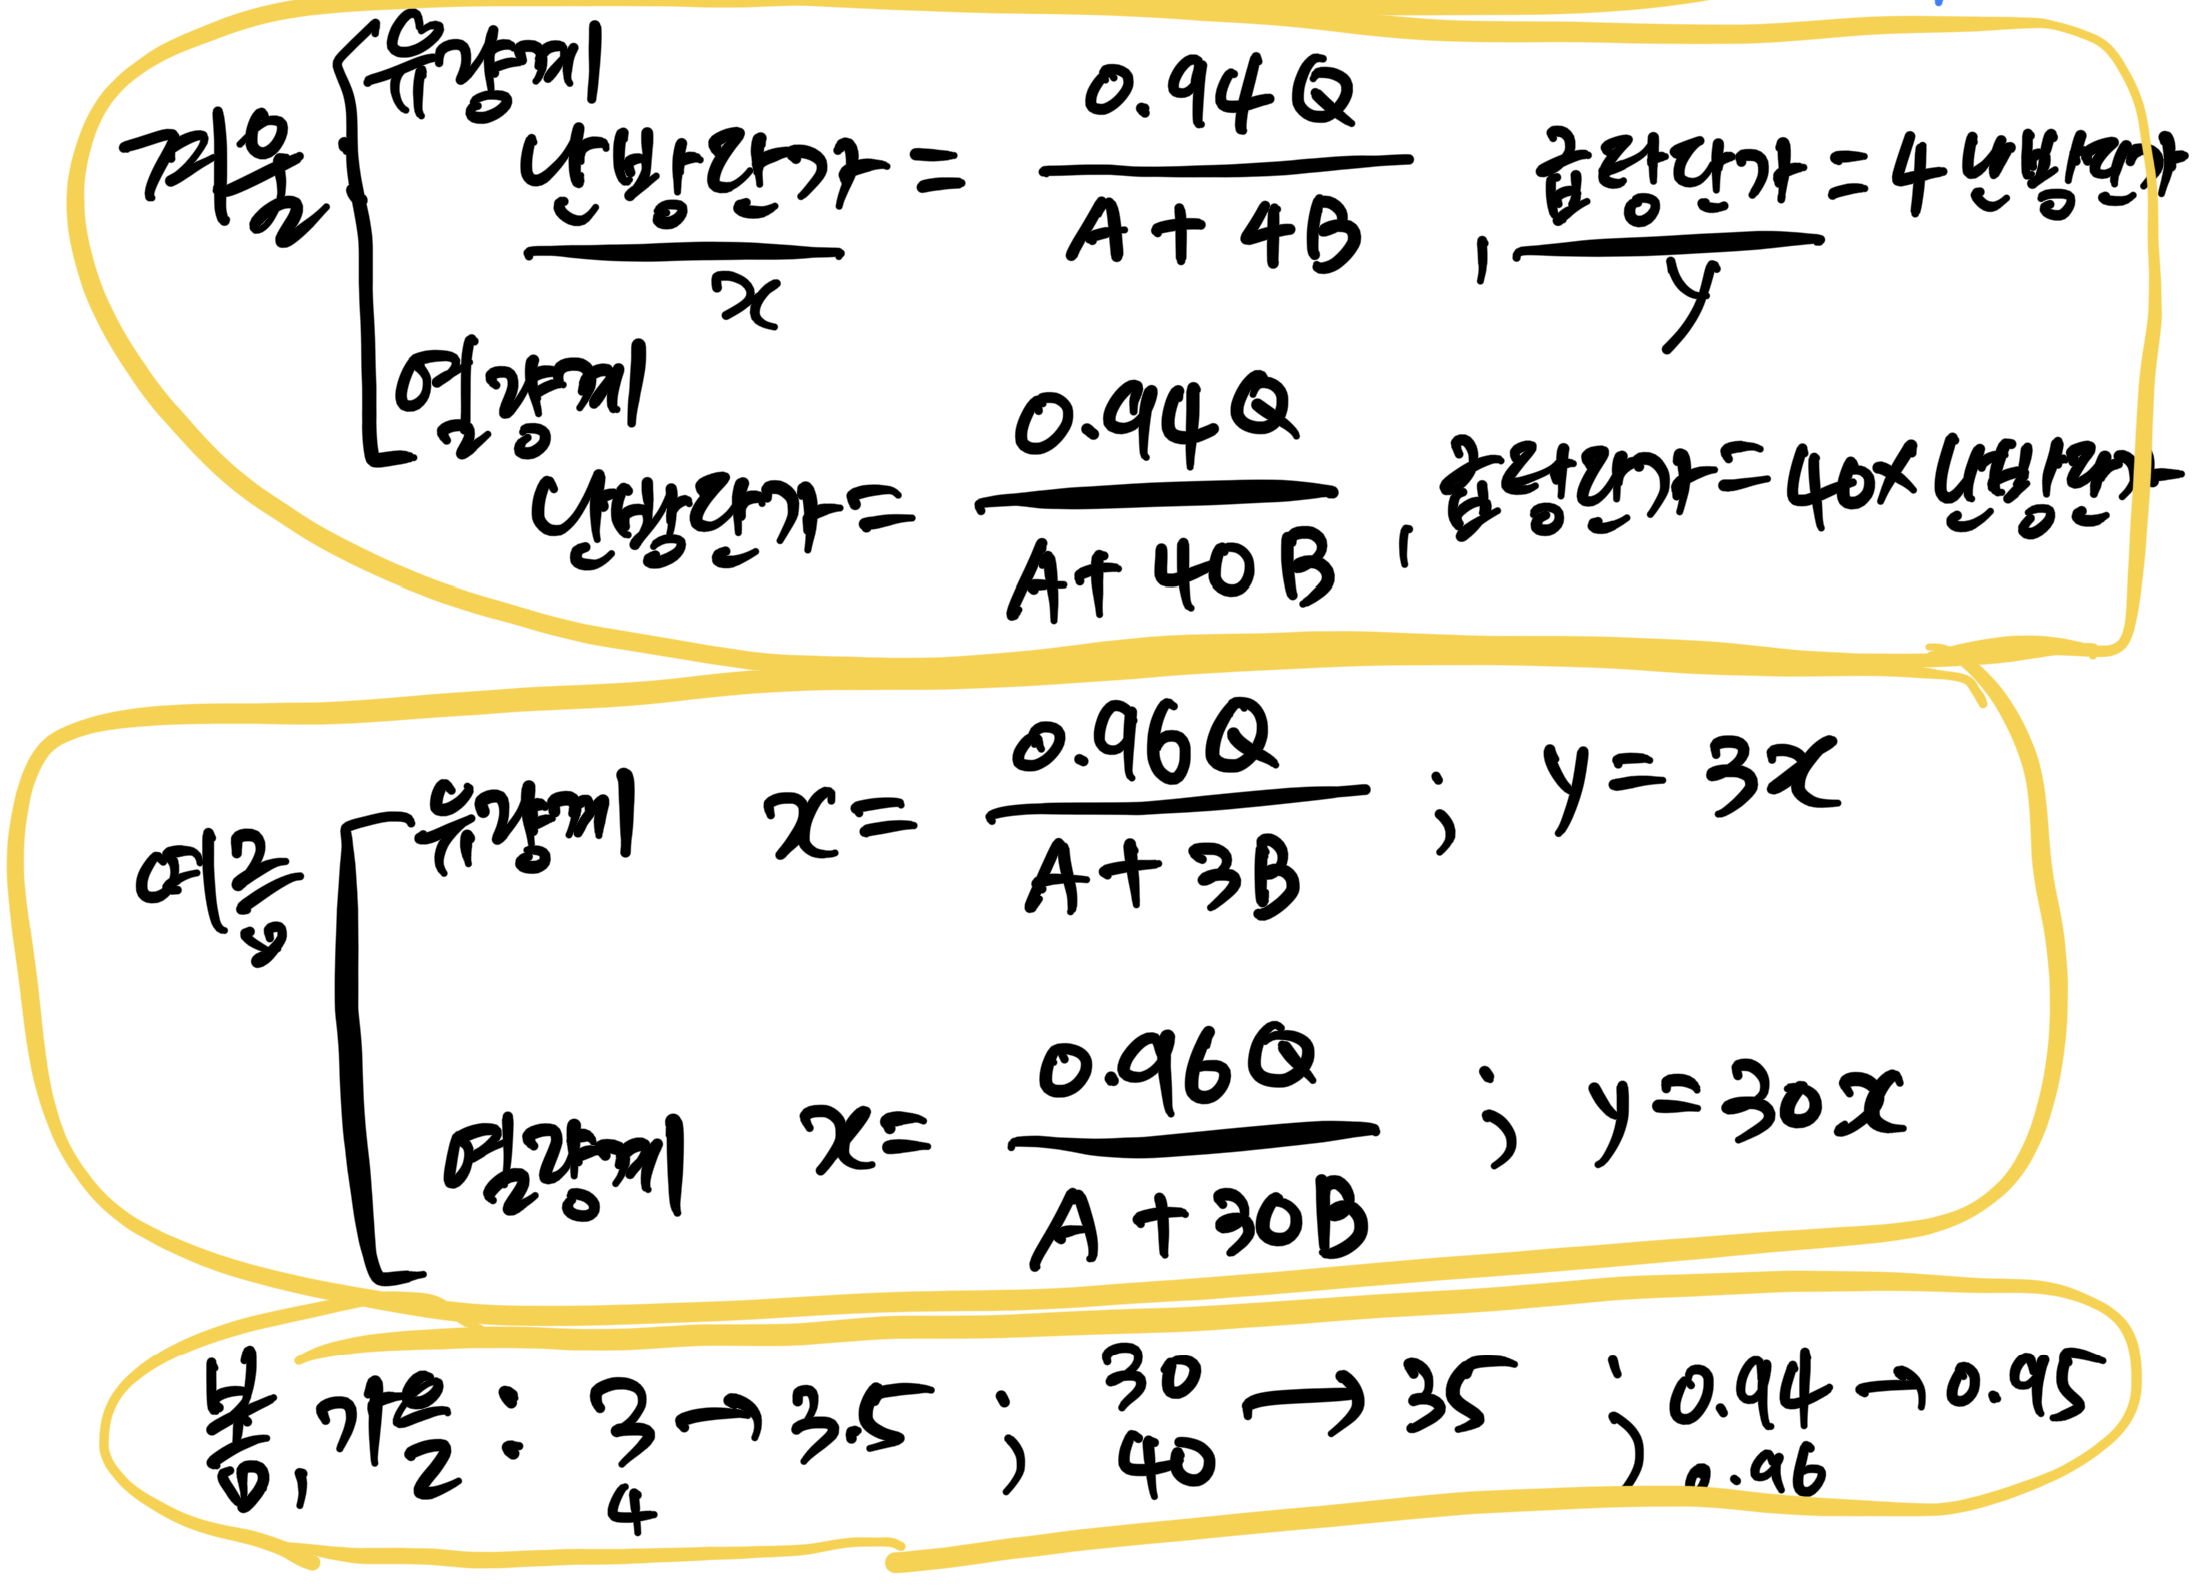 겨울 유량제
난방단가 = 0.94Q / A + 4B , 급탕단가 = 4 난방단가
x y
열량제
난방단가 = 0.94Q / A + 40B , 급탕단가 = 40x 난방단가
여름 유량제 x = 0.96Q / A + 3B ; y = 3x
열량제 x = 0.96Q / A + 30B ; y = 30x
봄, 가을 : 3 4 → 3.5 ; 30 40 → 35 ; 0.94 0.96 → 0.95